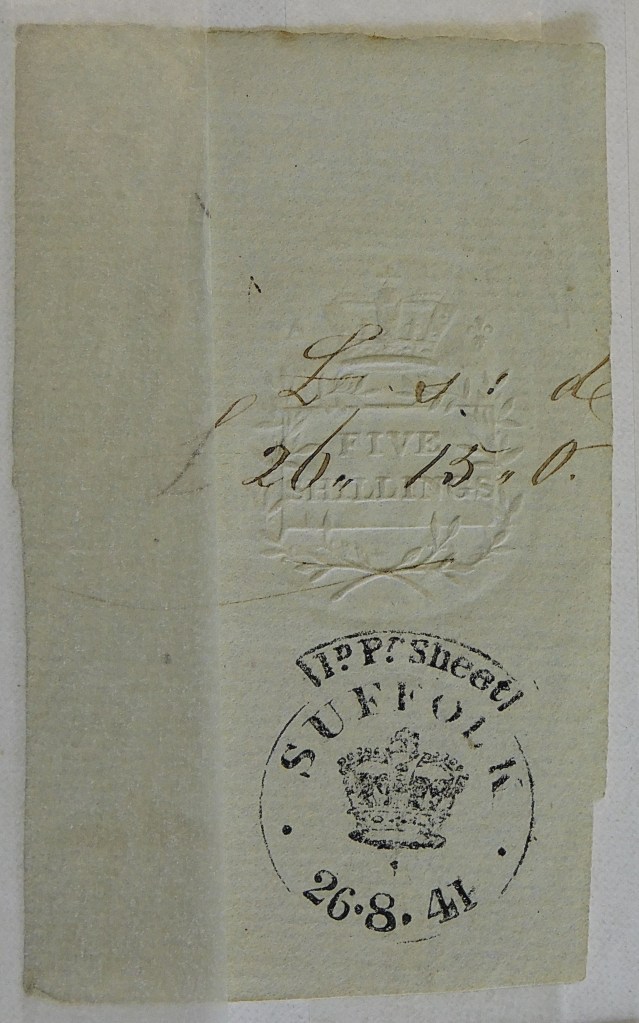 L s : d
FIVE
£ 26 ,, 15 ,, 0.
SHILLINGS
1D. Pr. Sheet
SUFFOLK
26.8.41